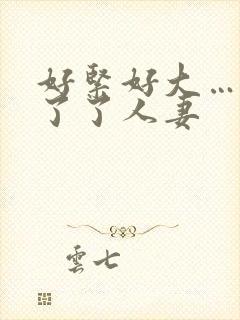 好緊好大…
了了人妻
雲七